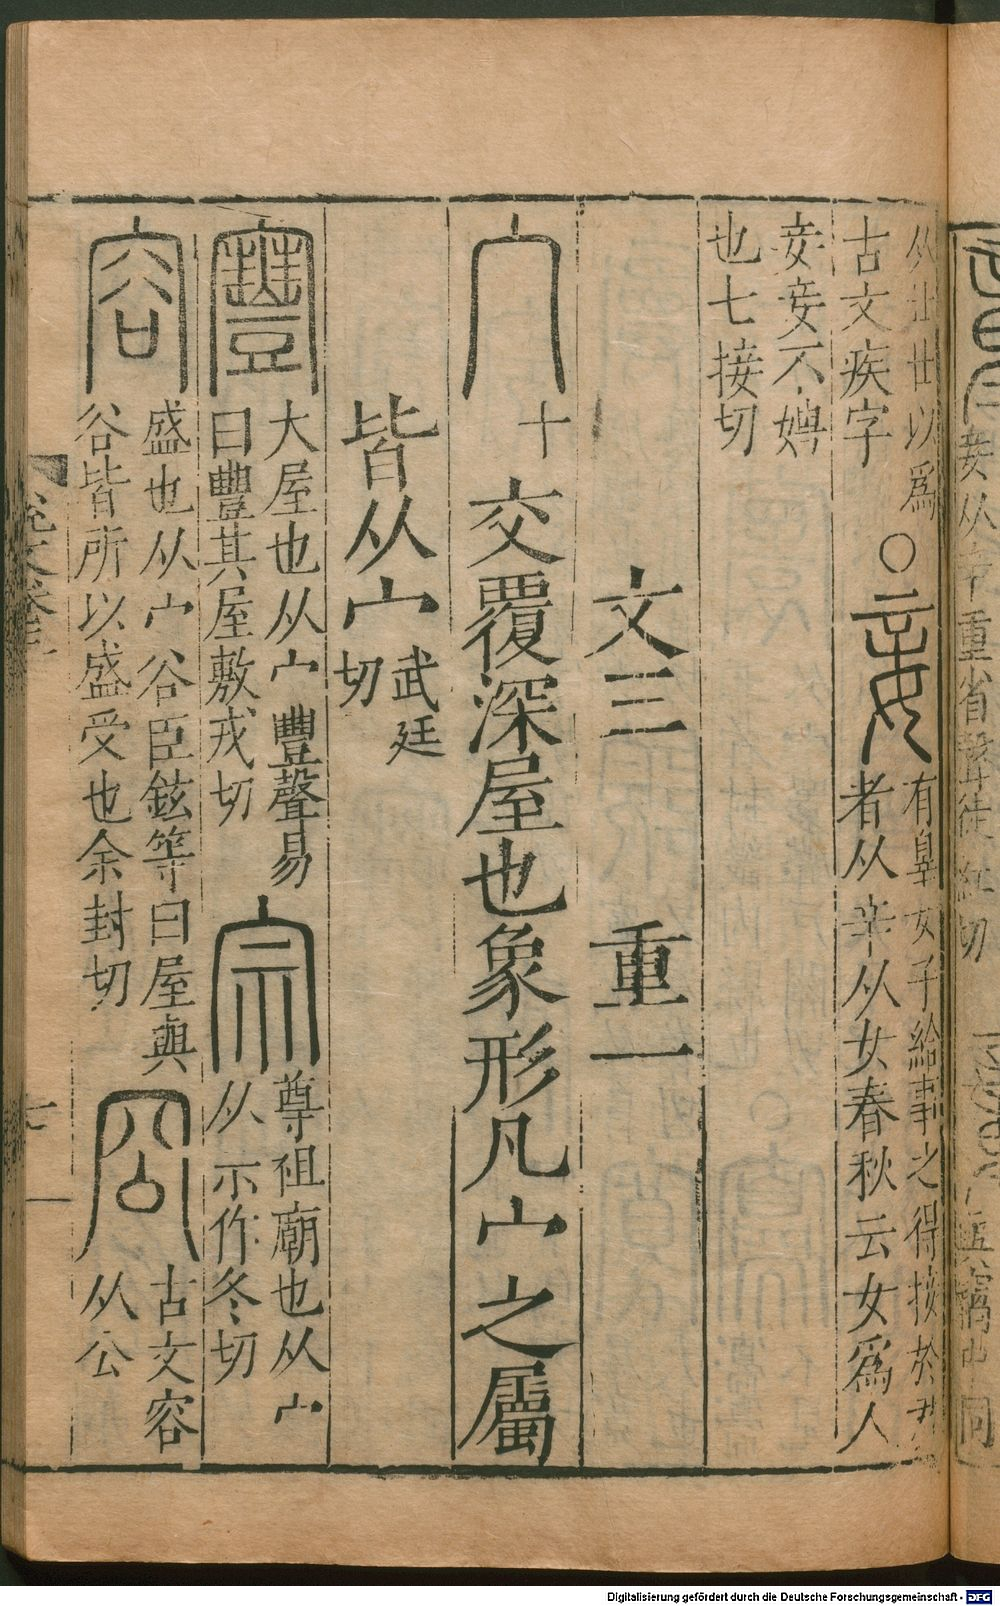 从廿廿以爲
古文疾字
〇妾有辠女子給事之得接於君
者从䇂从女春秋云女爲人
妾妾不娉
也七接切
文三 重一
宀十交覆深屋也象形凡宀之屬
皆从宀武延
切
寷大屋也从宀豐聲易
曰豐其屋敷戎切
宗尊祖廟也从宀
从示作冬切
容盛也从宀谷臣鉉等曰屋與
谷皆所以盛受也余封切
㝐古文容
从公
說文卷三
七
Digitalisierung gefördert durch die Deutsche Forschungsgemeinschaft - DFG